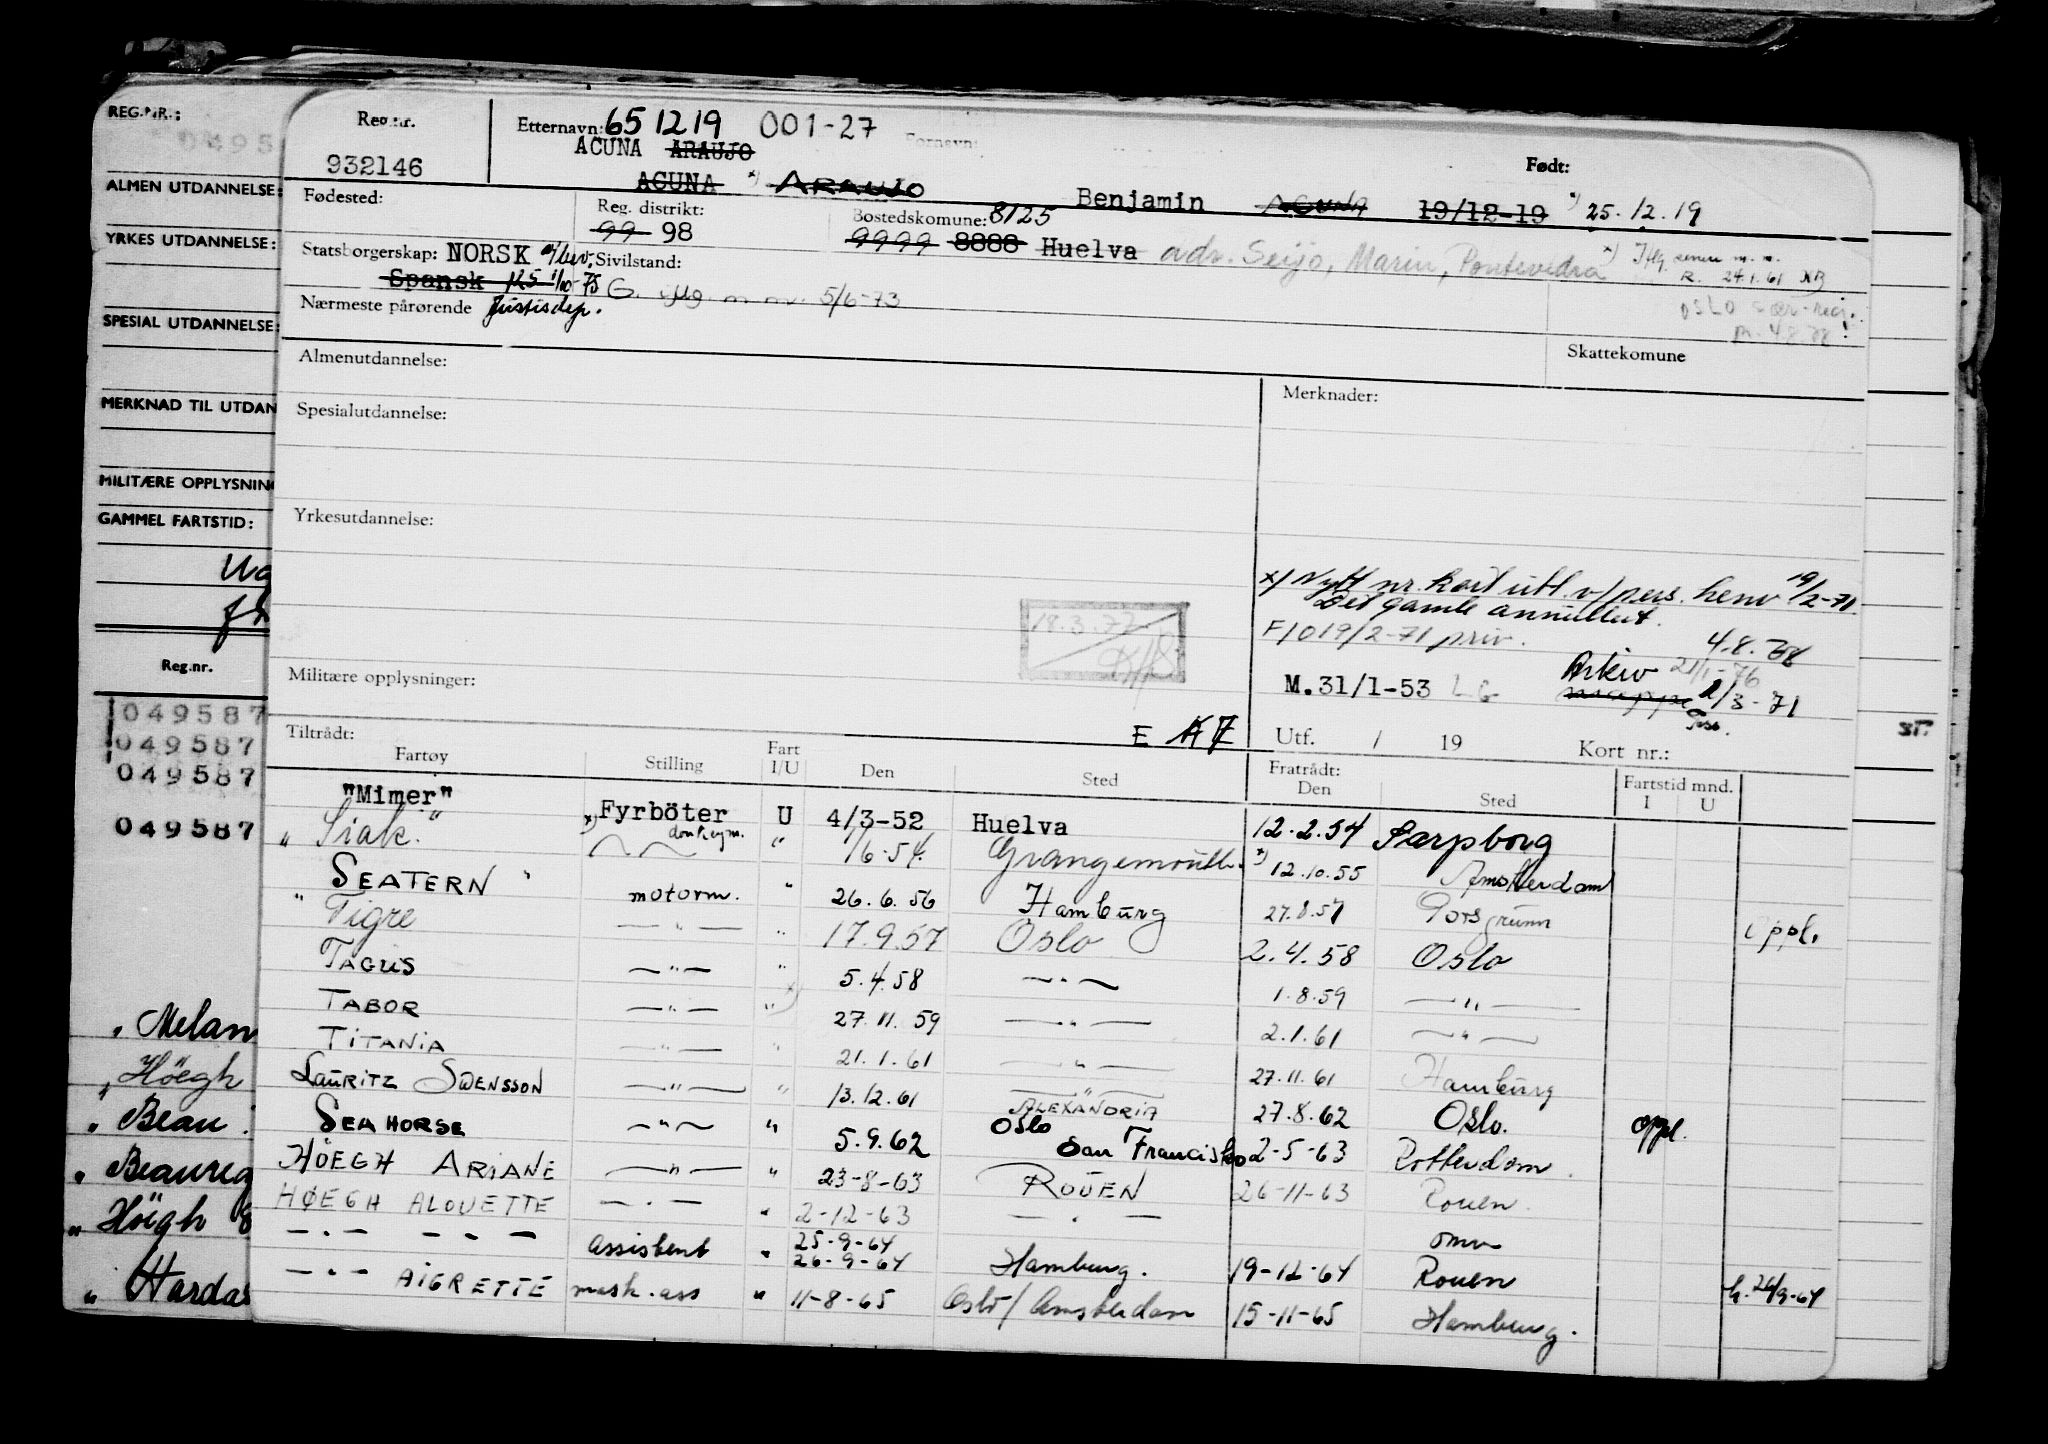 REG.NR.:
0495
ALMEN UTDANNELSE:
YRKES UTDANNELSE:
SPESIAL UTDANNELSE:
MERKNAD TIL UTDAN
MILITÆRE OPPLYSNIN
GAMMEL FARTSTID:
Reg.nr.
049587
049587
049587
049587
" Melan
" Höegh
" Beau
" Beaureg
" Höegh
" Hardas
Reg.nr.
932146
Etternavn: 651219 001-27 Fornavn:
ACUNA ARAUJO
ACUNA x) ARAUJO Benjamin ACUNA
Født:
19/12-19 x) 25.12.19
Fødested:
Reg. distrikt:
99 98
Bostedskomune: 8125
9999 8888 Huelva adr. Seijo, Marin, Pontevedra
Statsborgerskap: NORSK
Spansk
Sivilstand:
G. 5/6-73
R. 24.1.61
OSLO
Nærmeste pårørende Justisdep.
Almenutdannelse:
Skattekomune
Spesialutdannelse:
Merknader:
Yrkesutdannelse:
x) Nytt nr. kort utl. v/pers. henv 19/2-71
Det gamle annullert.
F/O 19/2-71 priv.
18.3.77
4.8.78
Arkiv 21/1-76
M.31/1-53
2/3-71
Militære opplysninger:
E
Utf. / 19 Kort nr.:
Tiltrådt:
Fratrådt:
Fartøy Stilling Fart I/U Den Sted Den Sted Fartstid mnd. I U
"Mimer" Fyrböter U 4/3-52 Huelva 12.2.54 Sarpborg
" Siak." donkeym. " 1/6-54. Grangemouth x) 12.10.55 Amsterdam
SEATERN " motorm. " 26.6.56 Hamburg 27.8.57 Porsgrunn
" Tigre — " — " 17.9.57 Oslo 2.4.58 Oslo oppl.
TAGUS — " — " 5.4.58 — " — 1.8.59 — " —
TABOR — " — " 27.11.59 — " — 2.1.61 — " —
TITANIA — " — " 21.1.61 — " — 27.11.61 Hamburg
LAURITZ SWENSSON — " — " 13.12.61 ALEXANDRIA 27.8.62 Oslo. oppl.
SEA HORSE — " — " 5.9.62 OSLO San Francisko 2-5-63 Rotterdam.
HÖEGH ARIANE — " — " 23-8-63 ROUEN 26-11-63 Rouen.
HØEGH ALOUETTE — " — " 2-12-63 — " —
— " — — — — assistent " 25-9-64 omm
26-9-64 Hamburg. 19-12-64 Rouen
— " — AIGRETTE mask.ass " 11-8-65 Oslo/Amsterdam 15-11-65 Hamburg.